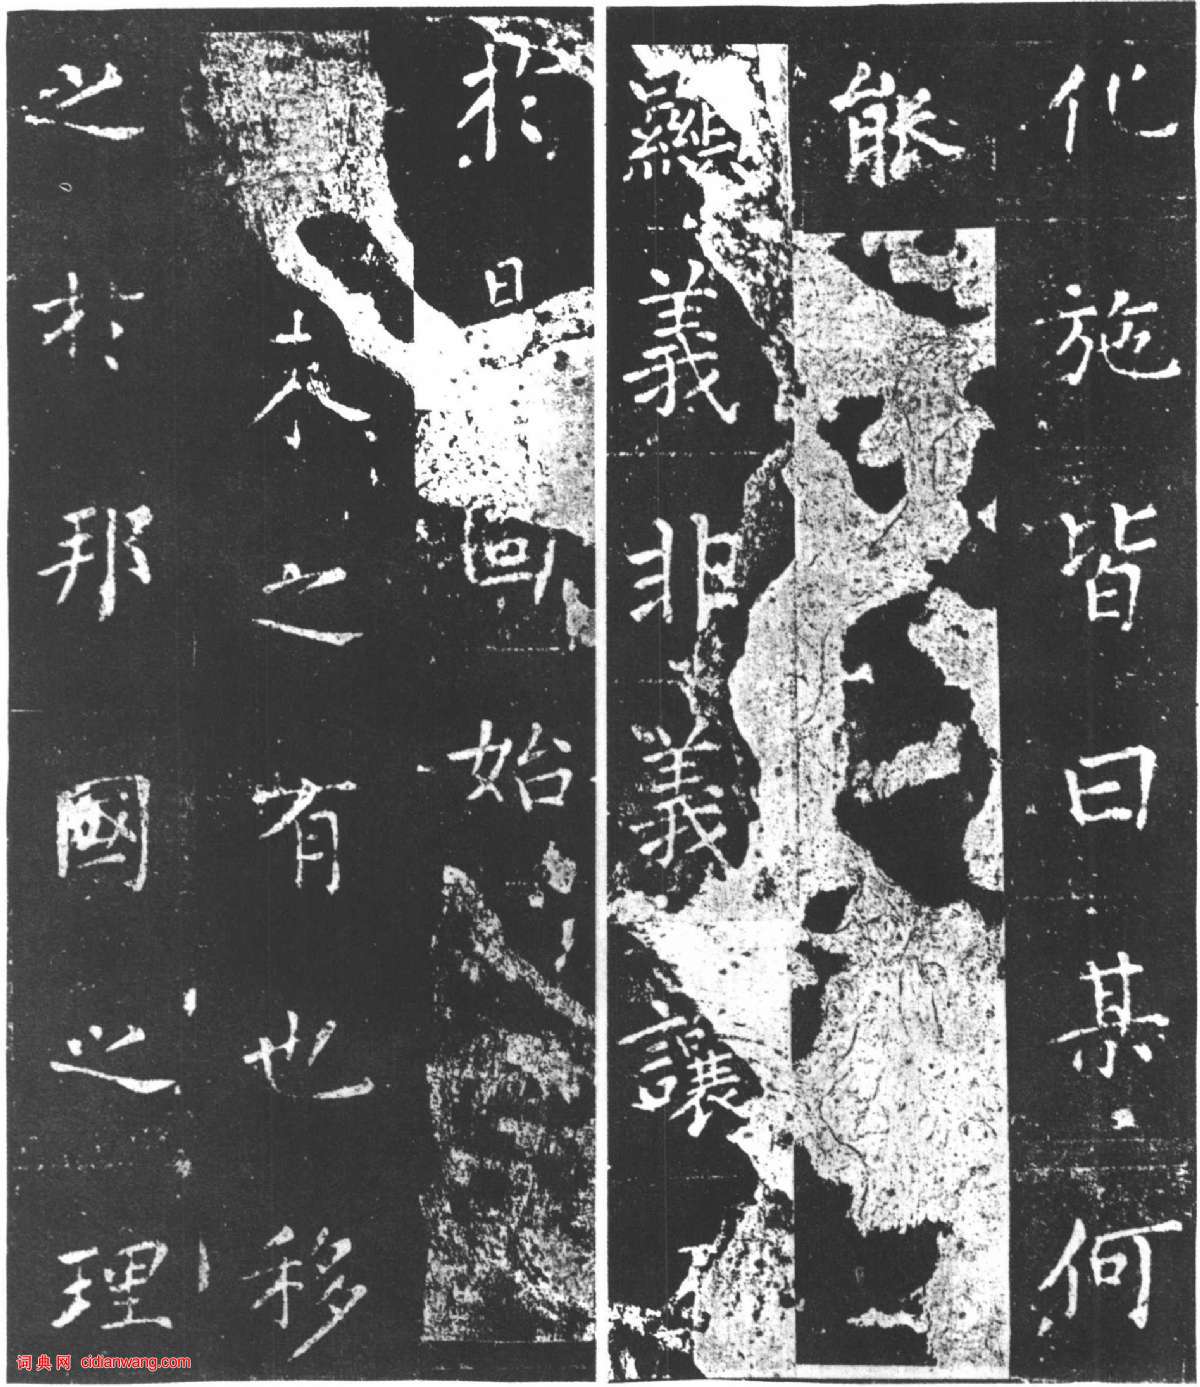 化施皆曰某何
能
㬎義非義讓
於日回始
未之有也移
之於邦國之理
词典网 cidianwang.com